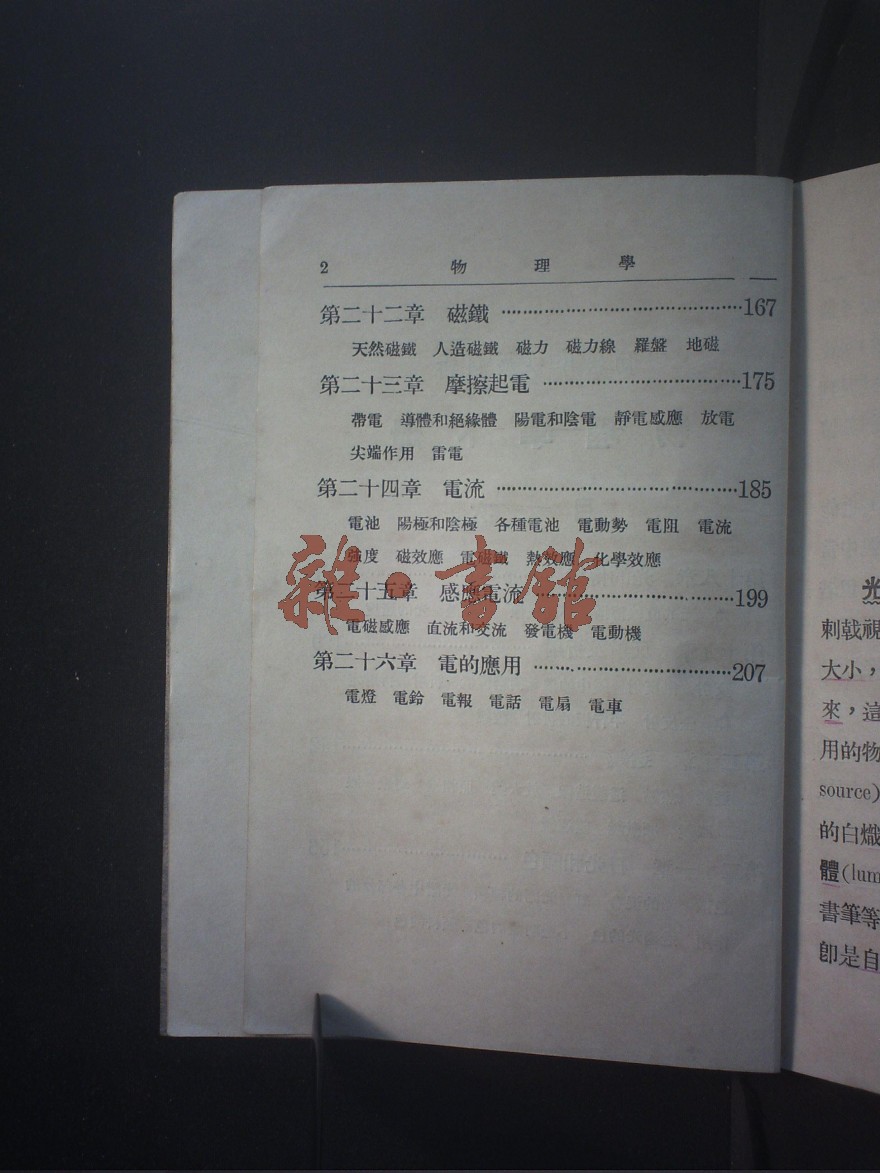 2 物理學
第二十二章 磁鐵 ……………………………………167
天然磁鐵 人造磁鐵 磁力 磁力線 羅盤 地磁
第二十三章 摩擦起電 ………………………………175
帶電 導體和絕緣體 陽電和陰電 靜電感應 放電
尖端作用 雷電
第二十四章 電流 ……………………………………185
電池 陽極和陰極 各種電池 電動勢 電阻 電流
強度 磁效應 電磁鐵 熱效應 化學效應
第二十五章 感應電流 ………………………………199
電磁感應 直流和交流 發電機 電動機
第二十六章 電的應用 ………………………………207
電燈 電鈴 電報 電話 電扇 電車
雜·書館
光
刺戟視
大小，
來，這
用的物
source)
的白熾
體(lum
書筆等
卽是自